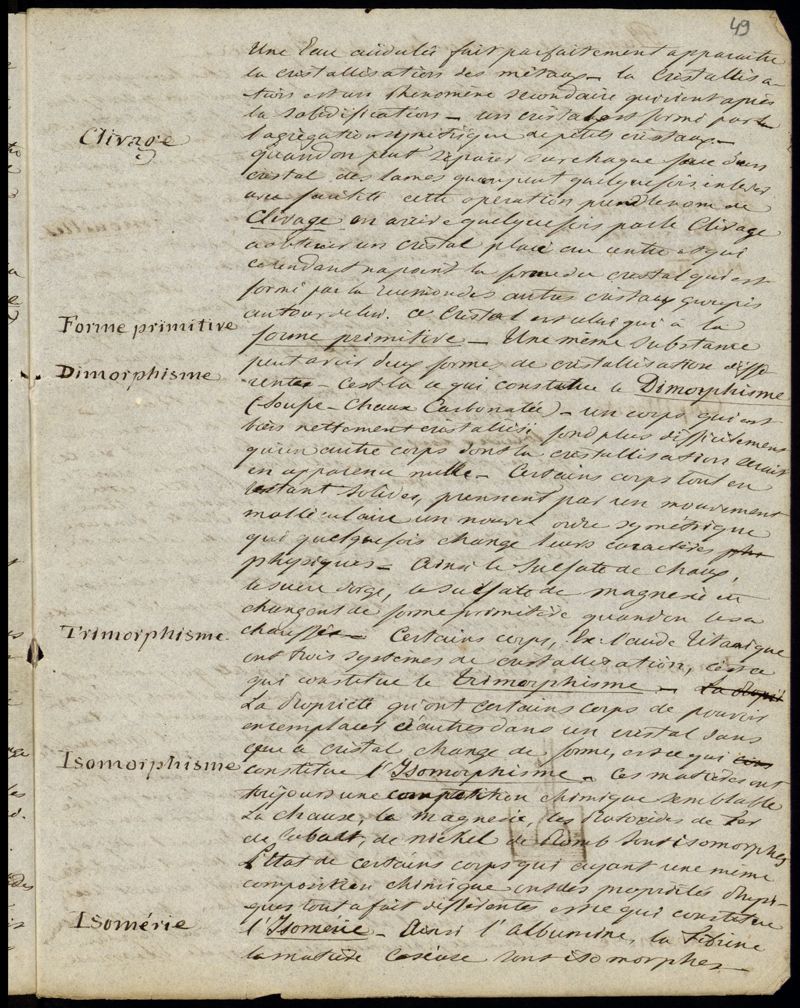 49
Une Eau acidulée fait parfaitement apparaitre
la cristallisation des métaux _ la Cristallisa-
tion est un phenomène secondaire qui vient après
la solidification _ un cristal est formé par la
Clivage
l'agrégation symétrique de petits cristaux _
quand on peut séparer sur chaque face d'un
cristal des lames qu'on peut quelquefois enlever
avec facilité cette opération prend le nom de
Clivage on arrive quelquefois par le Clivage
a obtenir un cristal placé au centre et qui
cependant n'a point la forme du cristal qui est
formé par la reunion des autres cristaux groupés
Forme primitive
autour de lui. ce Cristal est celui qui à la
forme primitive _ Une même substance
Dimorphisme
peut avoir deux formes de cristallisation diffé
rentes _ c'est la ce qui constitue le Dimorphisme
(Soufre _ Chaux Carbonatée) _ un corps qui est
bien nettement cristallisé fond plus difficilement
qu'un autre corps dont la cristallisation serait
en apparence nulle _ Certains corps tout en
restant solides, prennent par un mouvement
molléculaire un nouvel ordre symétrique
qui quelquefois change leurs caractères phi
physiques _ Ainsi le Sulfate de chaux,
le sucre d'orge, le sulfate de magnesie
changent de forme primitive quand on les a
Trimorphisme
chauffés _ Certains corps, l'acide titanique
ont trois systèmes de cristallisation, c'est ce
qui constitue le trimorphisme _ La Propri
La Propriété qu'ont certains corps de pouvoir
remplacer d'autres dans un cristal sans
que le cristal change de forme, est ce qui
Isomorphisme
constitue l'Isomorphisme _ Ces matières ont
toujours une composition chimique semblable
La chause, la magnesie, les Protoxides de Fer
de Cobalt, de nickel de Plomb sont isomorphes
L'Etat de certains corps qui ayant une même
composition chimique ont des propriétés physi-
ques tout a fait différentes est ce qui constitue
Isomérie
l'Isomérie _ Ainsi l'Albumine, la Fibrine
la matière caséuse sont isomorphes _